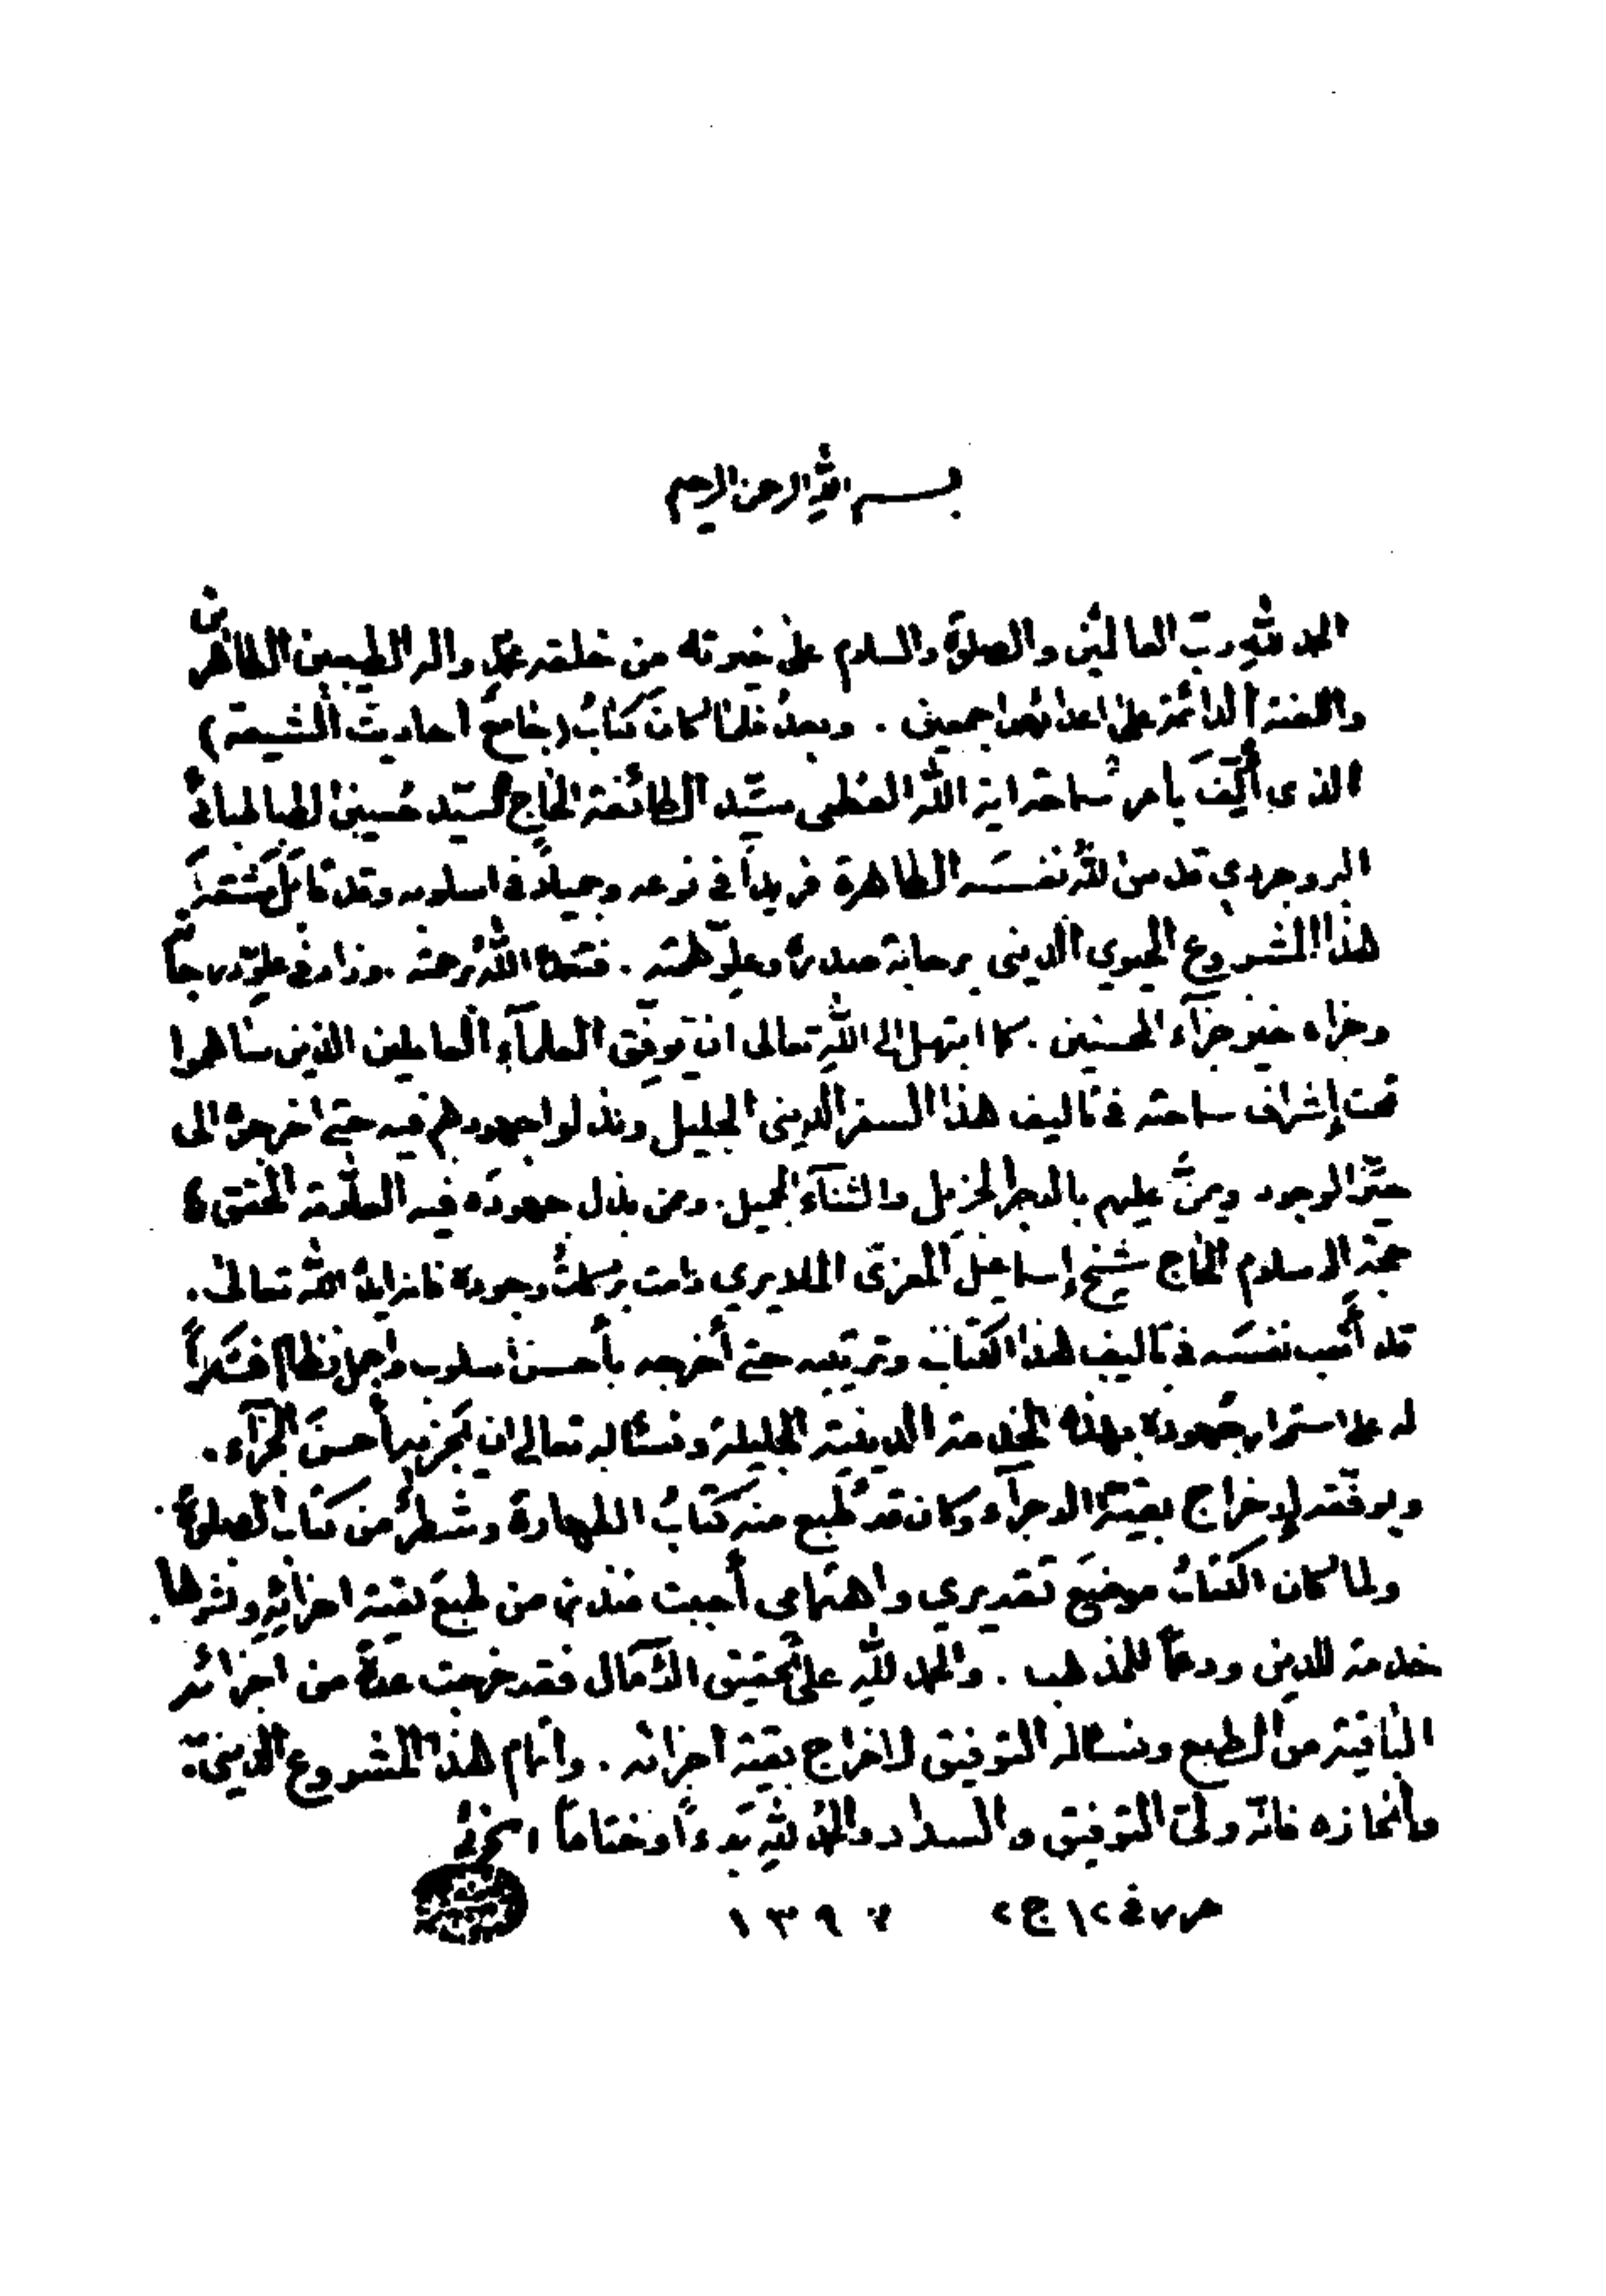 بسم الله الرحمن الرحيم
الحمد لله ربّ العالمين والصلوة والسلام على خيرته من خلقه محمّد واله الطيبين الطاهرين
واللعنة الدائمة على اعدائهم اجمعين . وبعدُ فلمّا كانَ كتابُ (جامعُ احاديث الشيعة)
الذي أُلّفَ بامر سُماحة اية الله العظمى سيّد الطائفة الحاج السيّد حُسين الطباطبائي
البروجردي قدس اللهُ نفسَه الطاهرة فريداً في نوعه وجميلاً في اسلوبه وقد تقبّل مشقة
هذا المشروع الحيوي الديني برحابة صدره وعلوّ همّته . فتغمّده اللهُ برحمته . وزاد في علوّ درجاته
وجزاه خير جزآء المحسنين . كما ابتهل الى الله تعالى ان يوفّق العلمآء العاملين الذين ساهموا
تحت إشراف سماحته في تاليف هذا السفر الديني الجليل وبذلوا جهودهم فيه حتى اخرجوه الى
حيّز الوجود ويمنَّ عليهم بالاجر الجزيل والثنآء الجميل . وممن بذل جهودَه فيه العلّامة المحقق
حجّة الاسلام الحاج شيخ إسماعيل المعزّى الملايري دامت بركاتُ وجوده فانه ايّدهُ الله تعالى .
قد أتعب نفسَه في تاليف هذا الكتاب وترتيبه حتى أخرجه بأحسن اسلوب واجمل نظام فشكراً
له على استمرار جُهوده بهذه الخدمة الدينيّة الجليلة ونسئاله تعالى ان يَجزيه أحسنَ الجزآء .
ويوفّقه لإخراج بقيّة الاجزآء وكان قد طُبع منه كتابُ الطهارة وشطرٌ من كتاب الصلوة .
ولما كان الكتابُ موضعَ تقديري واهتمامي أحببت طبعَ بقيّة اجزائه ونشرها .
خدمة للدين ودعماً للمذهب . والحمد لله على تحقيق الآمال فقد خرجت عدّة من اجزائه
الباقية من الطبع ونسئاله التوفيق لاخراج بقيّة اجزائه . واتمام هذا المشروع الدينيّ .
وأنجازه فانّه وليّ التوفيق والسداد والحمدُ لله بَدءاً وختاماً
١٣٩٧